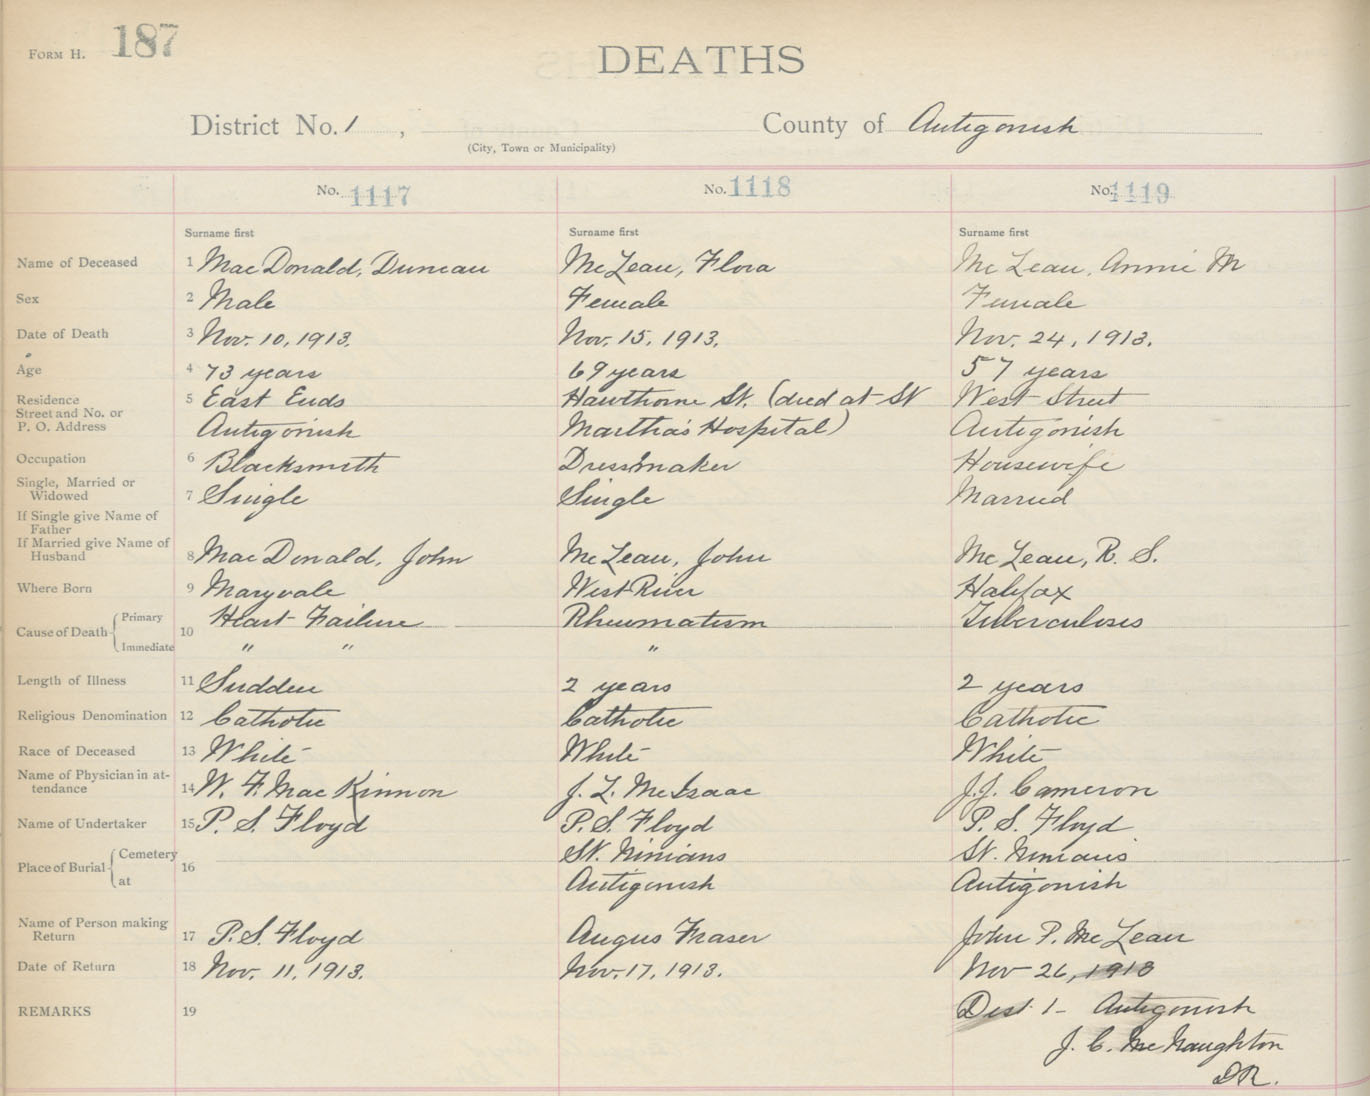 FORM H. 187
DEATHS
District No. 1 , County of Antigonish
(City, Town or Municipality)
No. 1117 No. 1118 No. 1119
Surname first Surname first Surname first
Name of Deceased 1 MacDonald, Duncan McLean, Flora McLean, Annie M
Sex 2 Male Female Female
Date of Death 3 Nov. 10, 1913. Nov. 15, 1913. Nov. 24, 1913.
Age 4 73 years 69 years 57 years
Residence 5 East Ends Hawthorne St. (died at St West Street
Street and No. or
P. O. Address Antigonish Martha's Hospital) Antigonish
Occupation 6 Blacksmith Dressmaker Housewife
Single, Married or
Widowed 7 Single Single Married
If Single give Name of
Father
If Married give Name of
Husband 8 MacDonald, John McLean, John McLean, R. S.
Where Born 9 Maryvale West River Halifax
Cause of Death { Primary 10 Heart Failure Rheumatism Tuberculosis
Immediate " " "
Length of Illness 11 Sudden 2 years 2 years
Religious Denomination 12 Catholic Catholic Catholic
Race of Deceased 13 White White White
Name of Physician in at-
tendance 14 W. F. MacKinnon J. L. McIsaac J.J. Cameron
Name of Undertaker 15 P. S. Floyd P. S. Floyd P. S. Floyd
Place of Burial { Cemetery 16 St. Ninians St. Ninians
at Antigonish Antigonish
Name of Person making
Return 17 P. S. Floyd Angus Fraser John P. McLean
Date of Return 18 Nov. 11, 1913. Nov. 17, 1913. Nov 26, 1913
REMARKS 19 Dist 1 - Antigonish
J. C. McNaughton
D.R.